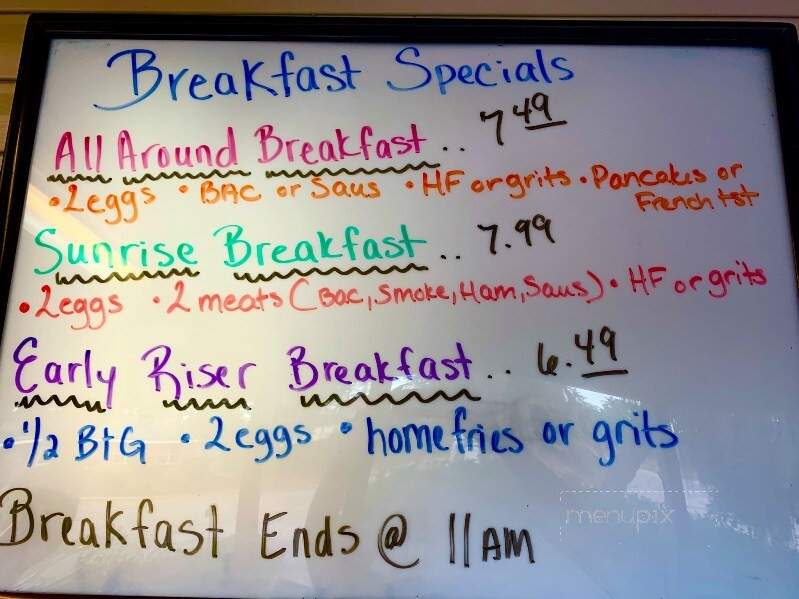 Breakfast Specials
All Around Breakfast.. 7 49
• 2eggs • BAC or Saus • HF or grits • Pancakes or
French tst
Sunrise Breakfast.. 7.99
• 2eggs • 2 meats (Bac, Smoke, Ham, Saus) • HF or grits
Early Riser Breakfast.. 6.49
• 1/2 B+G • 2eggs • homefries or grits
menupix
Breakfast Ends @ 11AM